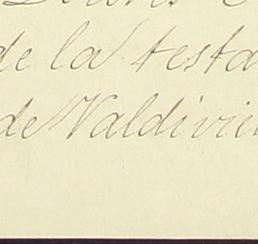 de la testa
de Valdivie